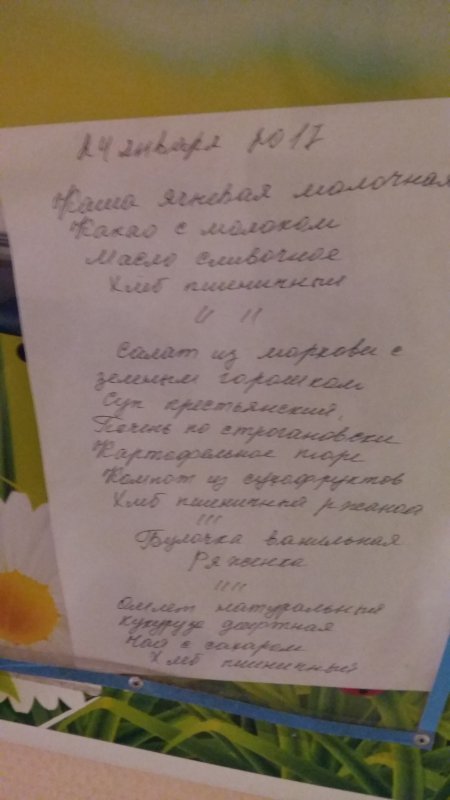 24 января 2017
Каша ячневая молочная
Какао с молоком
Масло сливочное
Хлеб пшеничный
" "
Салат из моркови с
зеленым горошком
Суп крестьянский,
Печень по строгановски
Картофельное пюре
Компот из сухофруктов
Хлеб пшеничный ржаной
"'
Булочка ванильная
Ряженка
" "
Омлет натуральный
Кукуруза
Чай с сахаром
Хлеб пшеничный